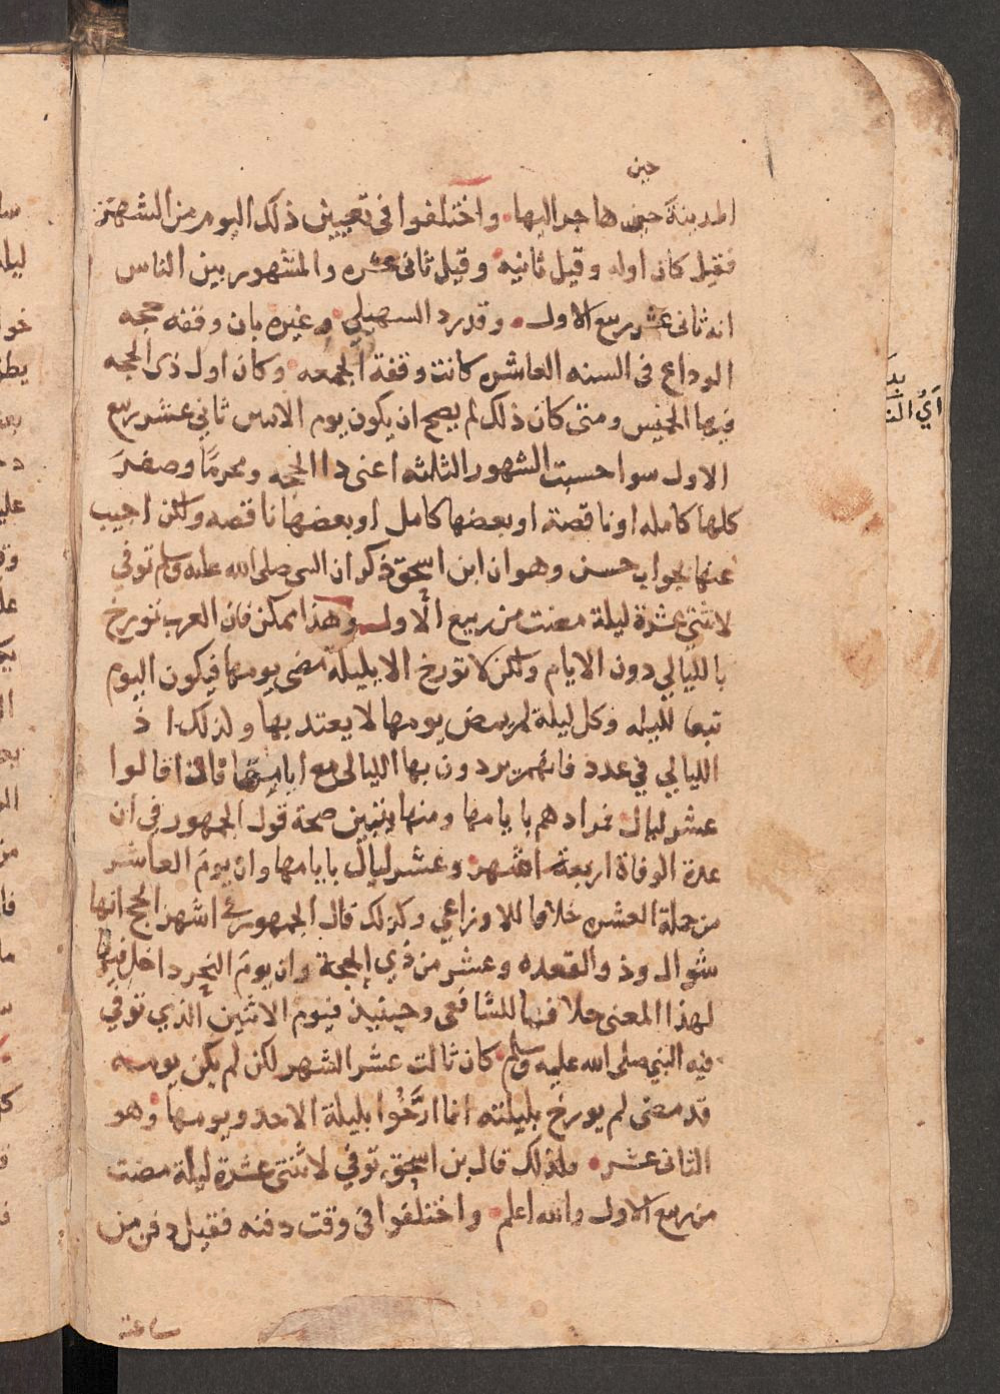 حين
المدينة حين هاجر اليها واختلفوا في تعيين ذلك اليوم من الشهر
فقيل كان اوله وقيل ثانيه وقيل ثاني عشره والمشهور بين الناس
انه ثاني عشر ربيع الاول وقد رد السهيلي وغيره بان وقفه حجه
الوداع في السنه العاشره كانت وقفة الجمعه وكان اول ذي الحجه
فيها الخميس ومتى كان ذلك لم يصح ان يكون يوم الاثنين ثاني عشر ربيع
الاول سوا حسبت الشهور الثلثه اعني ذا الحجه ومحرمًا وصفرَ
كلها كامله او ناقصة او بعضها كامل او بعضها ناقصه ولكن اجيب
عنها بجواب حسن وهو ان ابن اسحق ذكر ان النبي صلى الله عليه وسلم توفي
لاثنتي عشرة ليلة مضت من ربيع الاول وهذا يمكن فان العرب تورخ
بالليالي دون الايام ولكن لا تورخ الا بليلة مضى يومها فيكون اليوم
تبعا لليله وكل ليلة لم يمض يومها لا يعتد بها ولذلك اذ
الليالي في عدد فانهم يريدون بها الليالي مع ايامها فاذا قالوا
عشر ليال فمرادهم بايامها ومنها يتبين صحة قول الجمهور في ان
عدة الوفاة اربعة اشهر وعشر ليال بايامها وان يومَ العاشر
من جملة العشره خلافا للاوزاعي وكذلك قال الجمهور في اشهر الحج انها
شوال وذو القعده وعشر من ذي الحجة وان يومَ النحر داخل فيها
لهذا المعنى خلافا للشافعي وحينيذ فيوم الاثنين الذي توفي
فيه النبي صلى الله عليه وسلم كان ثالث عشر الشهر لكن لم يكن يومه
قد مضى لم يورخ بليلته انما ارَّخُوا بليلة الاحد ويومها وهو
الثاني عشر ولذلك قال بن اسحق توفي لاثنتي عشرة ليلة مضت
من ربيع الاول والله اعلم واختلفوا في وقت دفنه فقيل دفن من
ساعته